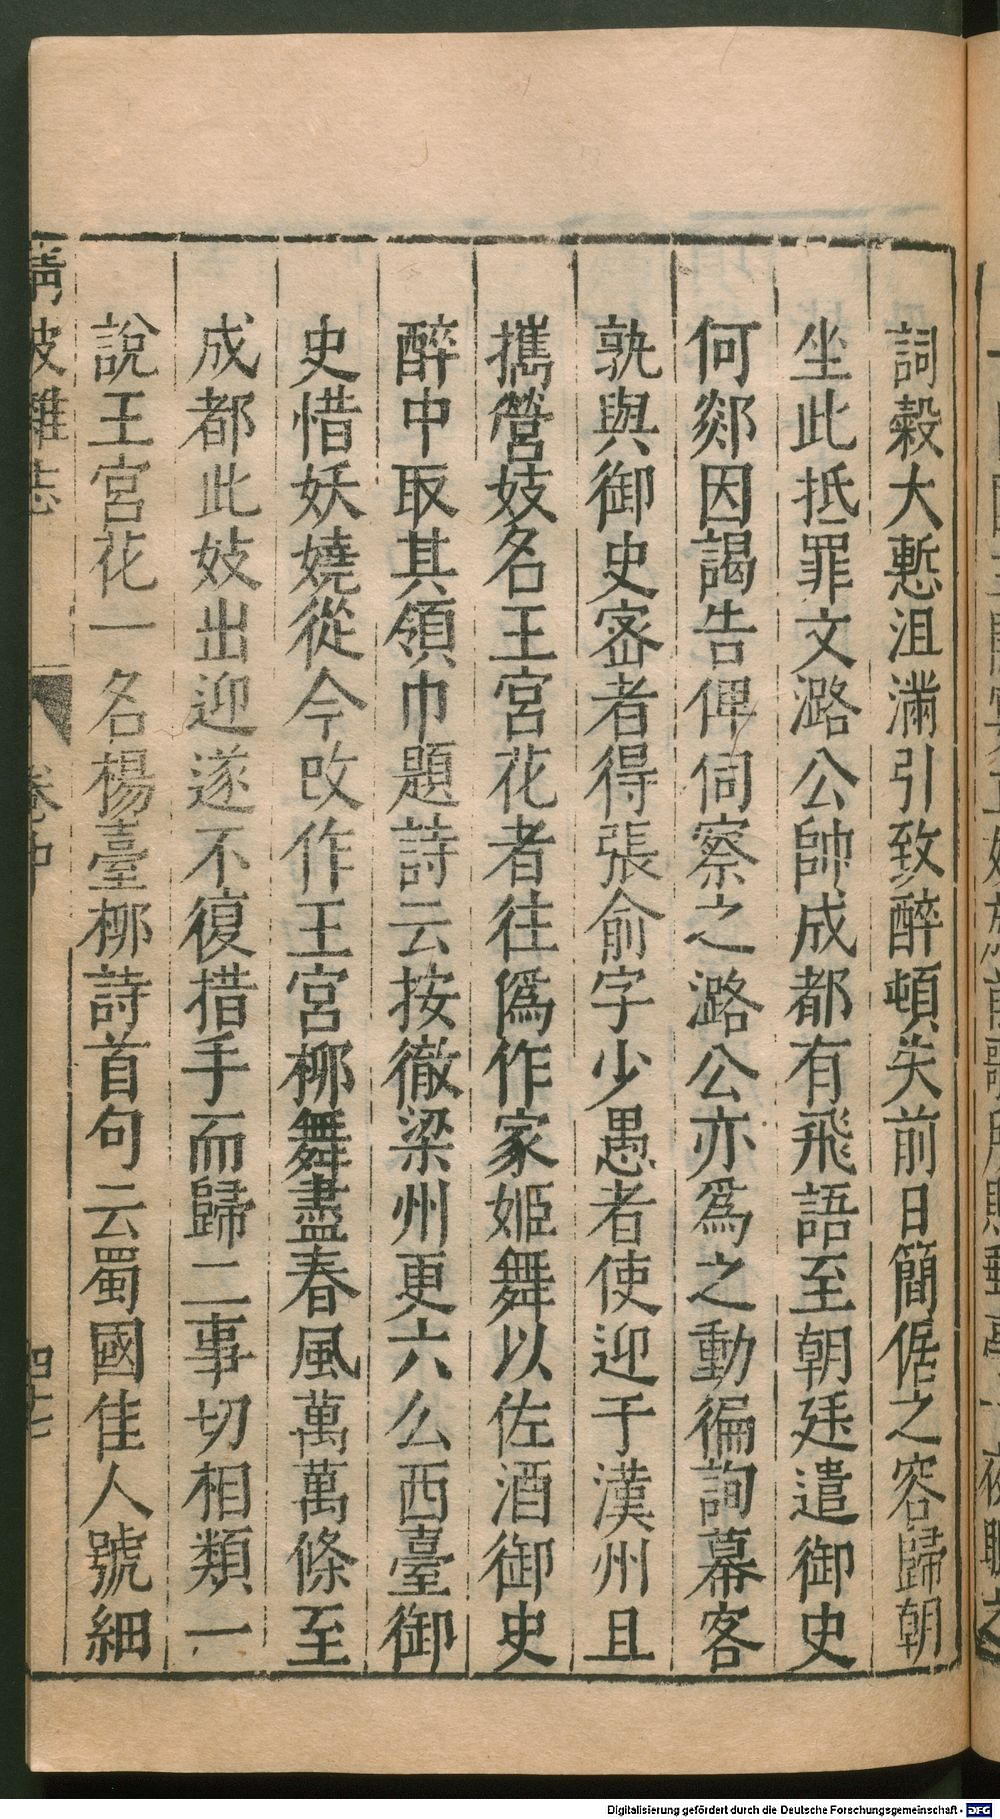 詞穀大慙沮滿引致醉頓失前日簡倨之容歸朝
坐此抵罪文潞公帥成都有飛語至朝廷遣御史
何郯因謁告俾伺察之潞公亦爲之動徧詢幕客
孰與御史宻者得張俞字少愚者使迎于漢州且
攜營妓名王宮花者往僞作家姬舞以佐酒御史
醉中取其領巾題詩云按徹梁州更六么西臺御
史惜妖嬈從今改作王宮栁舞盡春風萬萬條至
成都此妓出迎遂不復措手而歸二事切相類一
說王宮花一名楊臺栁詩首句云蜀國佳人號細
清波雜志 卷中
Digitalisierung gefördert durch die Deutsche Forschungsgemeinschaft - DFG